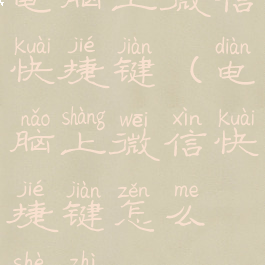 电脑上微信
kuài jié jiàn diàn
快捷键(电
nǎo shàng wēi xìn kuài
脑上微信快
jié jiàn zěn me
捷键怎么
shè zhì